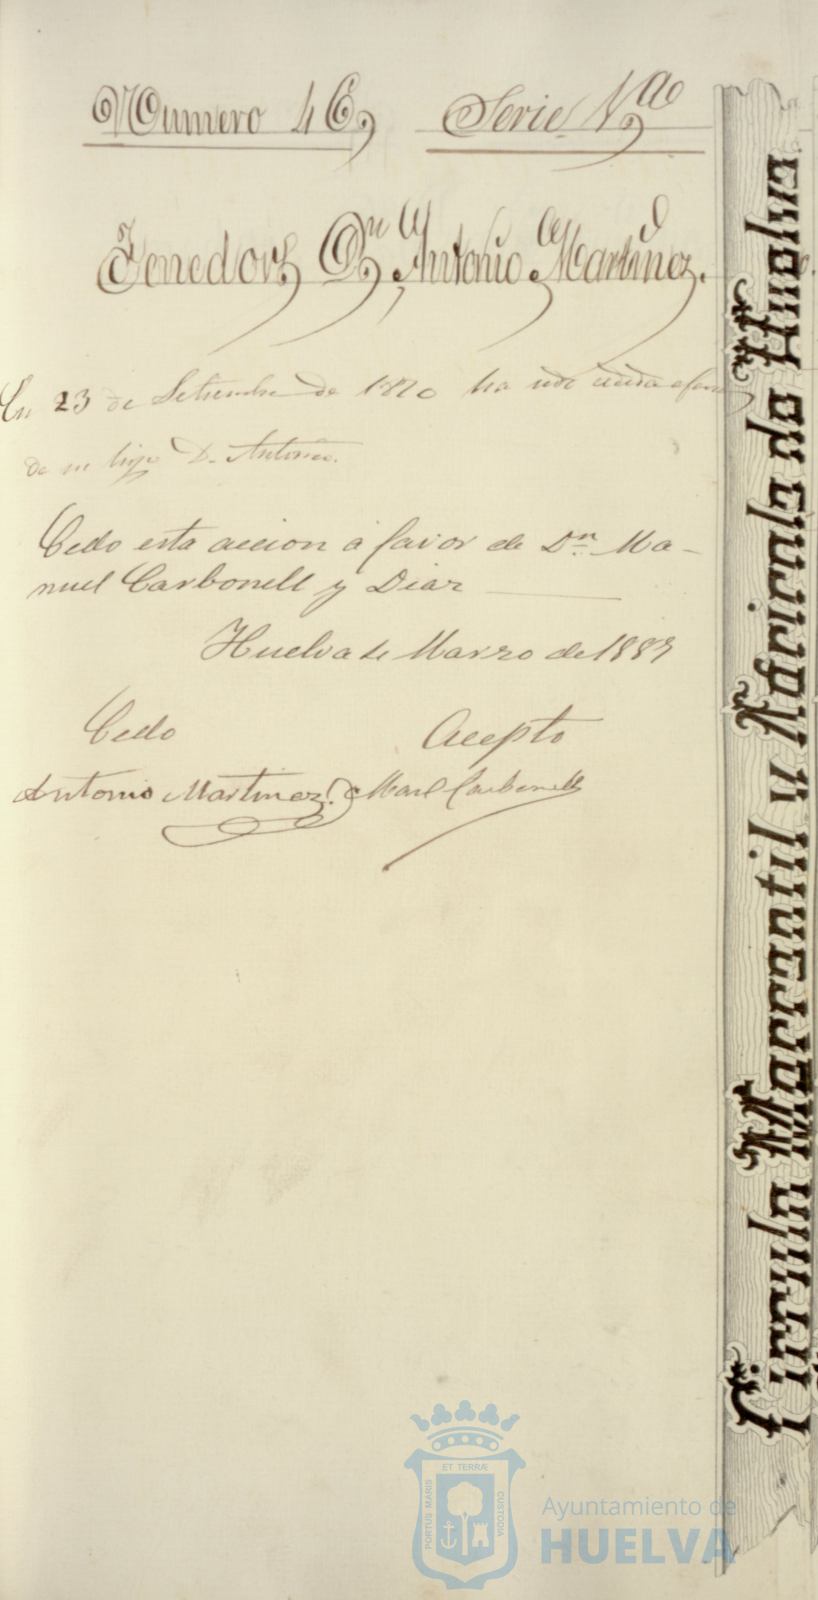 Numero 46, Serie 1ª
Tenedor, Dn Antonio Martinez.
En 23 de Setiembre de 1880 ha sido cedida a favor
de su hijo D. Antonio.
Cedo esta accion á favor de Dn Ma-
nuel Carbonell y Diaz
Huelva de Marzo de 1889
Cedo Acepto
Antonio Martinez Manl Carbonell
Círculo Mercantil y Agrícola de Huelva
ET TERRÆ
PORTUS MARIS
CUSTODIA
Ayuntamiento de
HUELVA